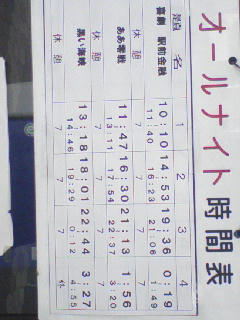 オールナイト時間表
名 1 2 3 4
喜劇 駅前金融 10:10 14:53 19:36 0:19
11:40 16:23 21:06 1:49
休憩 7 7 7 7
ああ零戦 11:47 16:30 21:13 1:56
13:11 17:54 22:37 3:20
休憩 7 7 7 7
黒い海峡 13:18 18:01 22:44 3:27
14:46 19:29 0:12 4:55
休憩 7 7 7